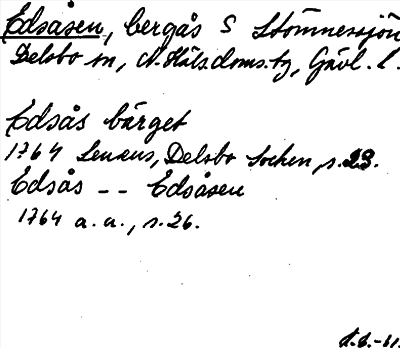 Edsåsen, bergås S Stömnessjön
Delsbo sn, N. Häls. doms. tg, Gävl. l.
Edsås bärget
1764 Lenæus, Delsbo Socken, s. 23.
Edsås -- Edsåsen
1764 a. a., s. 26.